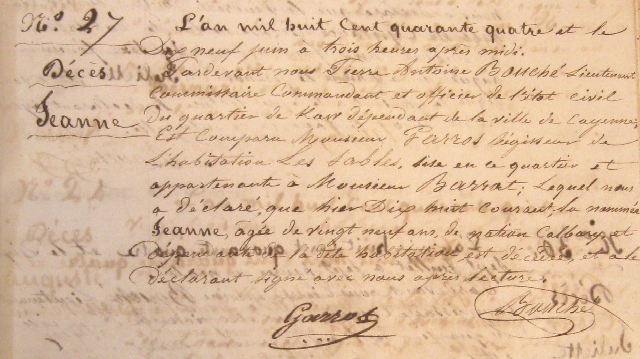 N.º 27
Décès
Jeanne
L'an mil huit Cent quarante quatre et le
Dix neuf juin à trois heures après midi.
Pardevant nous Pierre Antoine Bouché Lieutenant
Commissaire Commandant et officier de l'état civil
du quartier de Kaw dépendant de la ville de Cayenne,
Est Comparu Monsieur Garros Régisseur de
L'habitation Les Sables, sise en ce quartier et
appartenante à Monsieur Barrat; Lequel nous
a déclaré, que hier Dix huit courant, la nommée
Jeanne, agée de vingt neuf ans, de nation Calbary, et
dépendante de la dite habitation est décédée, et a le
Déclarant signé avec nous après lecture.
Garros
Bouché